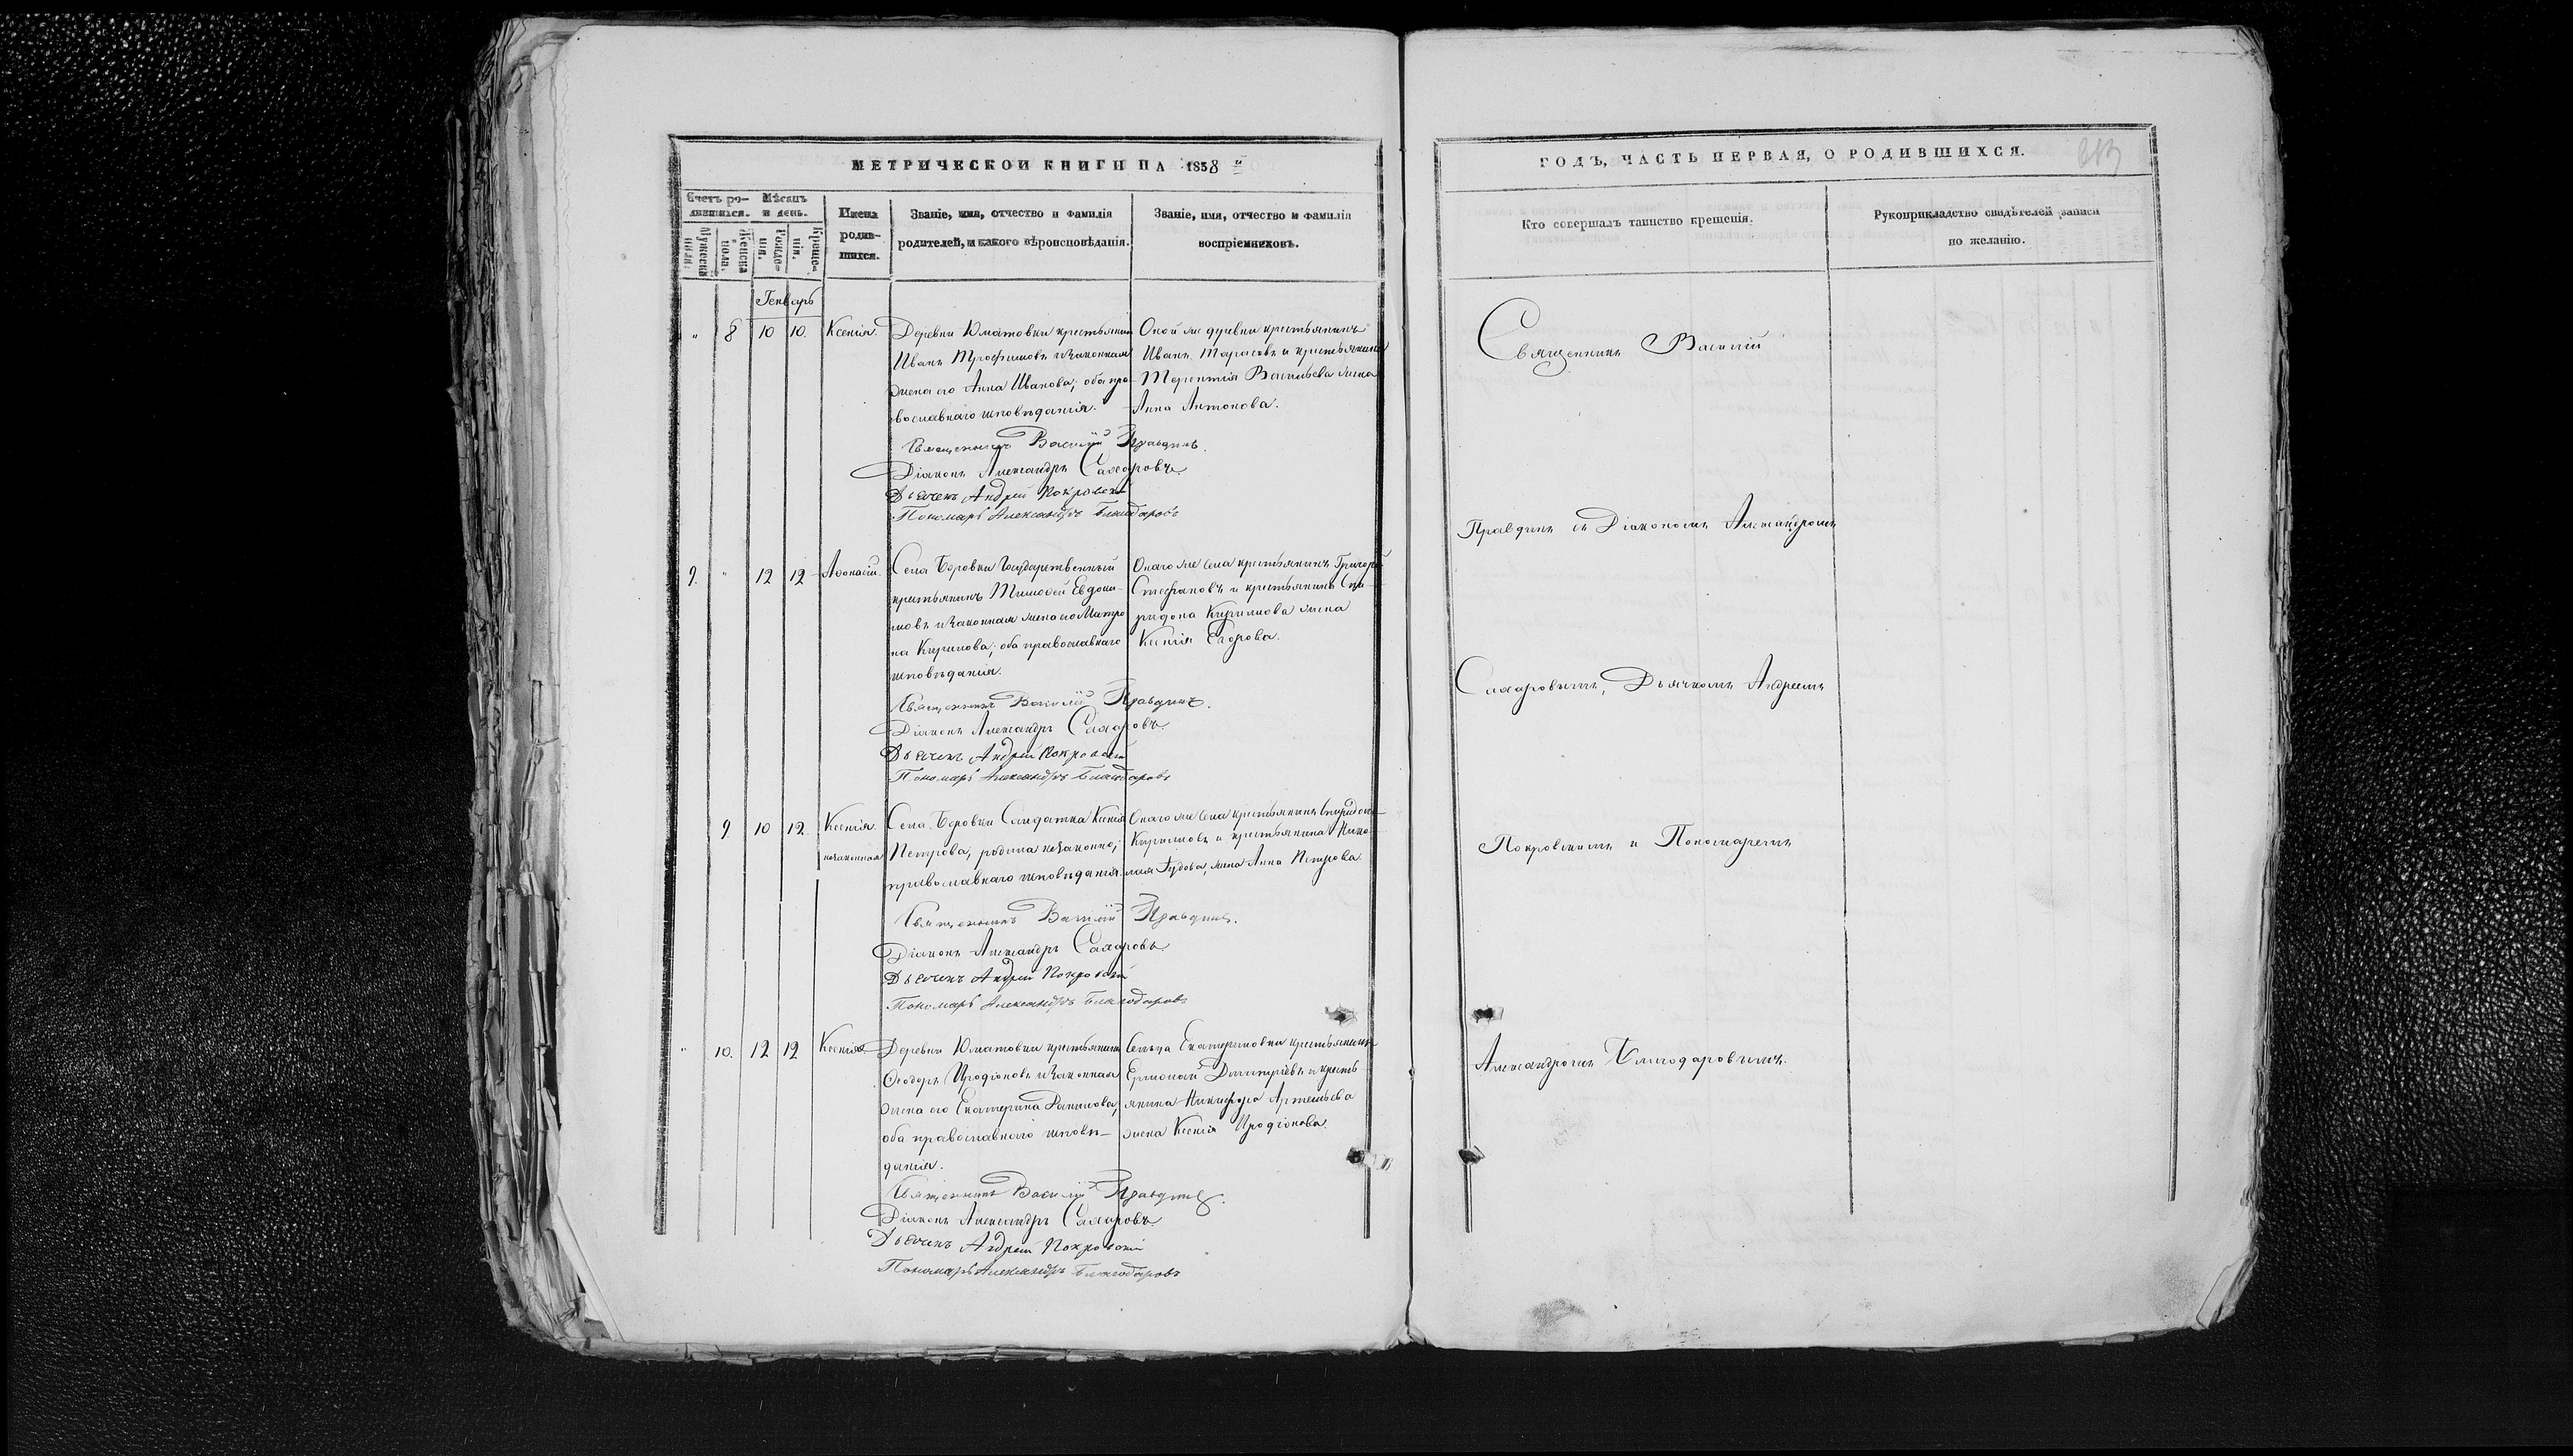 МЕТРИЧЕСКОЙ КНИГИ НА 1858й
Счетъ ро-
дившихся.
Мѣсяцъ
и день.
Мужеска
пола.
Женска
пола.
Рожде-
нія.
Креще-
нія.
Имена
родив-
шихся.
Званіе, имя, отчество и фамилія
родителей, и какого вѣроисповѣданія.
Званіе, имя, отчество и фамилія
воспріемниковъ.
Генварь
" 8 10 10. Ксенія.
Деревни Юматовки крестьянинъ
Иванъ Трофимовъ и законная
жена его Анна Иванова; оба пра-
вославнаго исповѣданія.
Оной же деревни крестьянинъ
Иванъ Тарасовъ и крестьянина
Терентія Васильева жена
Анна Антонова.
Священникъ Василій Правдинъ.
Діаконъ Александръ Сахаровъ
Дьячекъ Андрей Покровскій
Пономарь Александръ Благодаровъ
9. " 12 12 Аѳонасій.
Села Боровки Государственный
крестьянинъ Тимоѳей Евдоки-
мовъ и законная жена его Матро
на Кирилова; оба православнаго
исповѣданія.
Онаго же села крестьянинъ Григорій
Стефановъ и крестьянина Спи-
ридона Кирилова жена
Ксенія Егорова.
Священникъ Василій Правдинъ.
Діаконъ Александръ Сахаровъ
Дьячекъ Андрей Покровскій
Пономарь Александръ Благодаровъ
9 10 12. Ксенія
незаконная
Села Боровки Солдатка Ксенія
Петрова, родила незаконно;
православнаго исповѣданія.
Онаго же села крестьянинъ Спиридонъ
Кириловъ и крестьянина Нико-
лая жена Анна Петрова.
Священникъ Василій Правдинъ.
Діаконъ Александръ Сахаровъ
Дьячекъ Андрей Покровскій
Пономарь Александръ Благодаровъ
" 10. 12 12 Ксенія.
Деревни Юматовки крестьянинъ
Ѳеодоръ Иродіоновъ и законная
жена его Екатерина Данилова;
оба православнаго исповѣ-
данія.
Сельца Екатериновки крестьянинъ
Ермолай Димитріевъ и кресть
янина Никифора Артемьева
жена Ксенія Иродіонова.
Священникъ Василій Правдинъ.
Діаконъ Александръ Сахаровъ
Дьячекъ Андрей Покровскій
Пономарь Александръ Благодаровъ
ГОДЪ, ЧАСТЬ ПЕРВАЯ, О РОДИВШИХСЯ.
Кто совершалъ таинство крещенія.
Рукоприкладство свидѣтелей записи
по желанію.
Священникъ Василій
Правдинъ съ Діакономъ Александромъ
Сахаровымъ, Дьячкомъ Андреемъ
Покровскимъ и Пономаремъ
Александромъ Благодаровымъ.